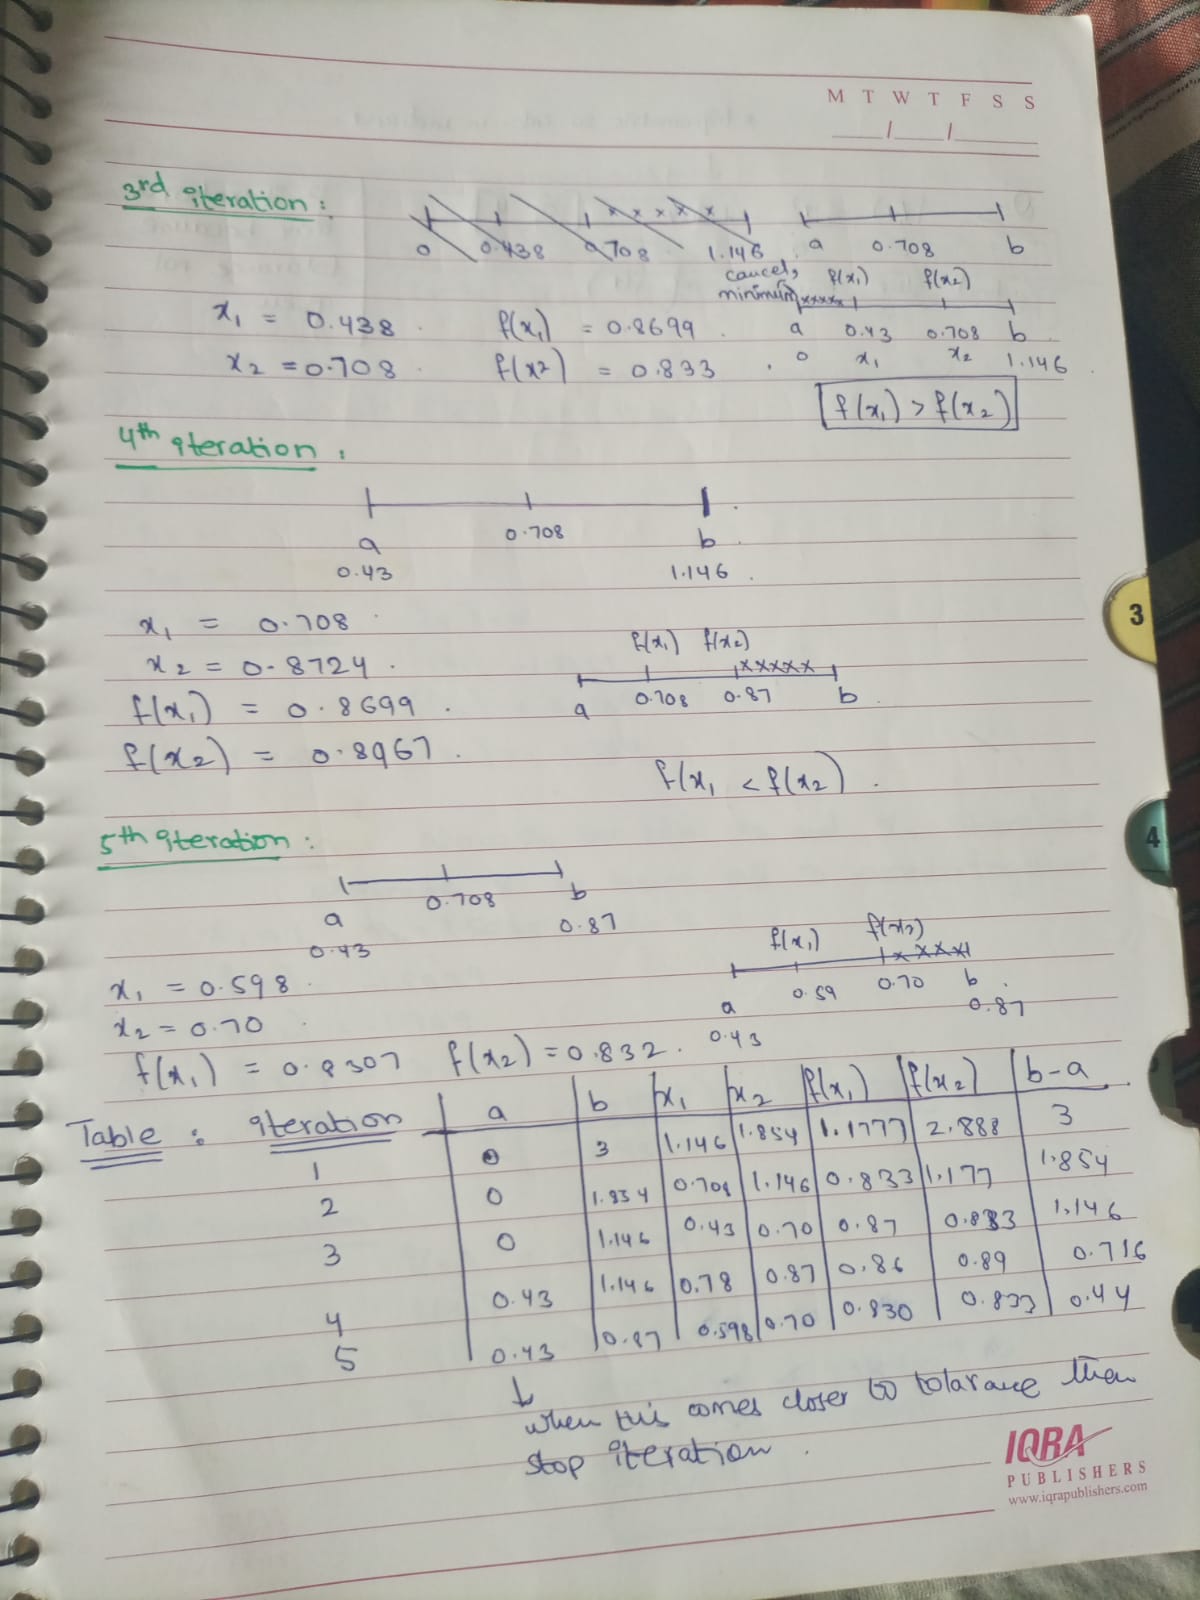 M T W T F S S
3rd iteration :
0 0.438 0.708 1.146
a 0.708 b
cancel, f(x1) f(x2)
minimum xxxxx
x1 = 0.438 . f(x1) = 0.8699 . a 0.43 0.708 b
x2 = 0.708 . f(x2) = 0.833 . 0 x1 x2 1.146
f(x1) > f(x2)
4th iteration :
a 0.708 b
0.43 1.146
x1 = 0.708
x2 = 0.8724 .
f(x1) f(x2)
xxxxx
f(x1) = 0.8699 . a 0.708 0.87 b
f(x2) = 0.8967 .
f(x1 < f(x2) .
5th iteration :
a 0.708 b
0.43 0.87
f(x1) f(x2)
x xxx
x1 = 0.598 . a 0.59 0.70 b
x2 = 0.70 0.43 0.87
f(x1) = 0.8307 f(x2) = 0.832 .
Table : iteration a b x1 x2 f(x1) f(x2) b-a
1 0 3 1.146 1.854 1.1777 2.888 3
2 0 1.854 0.708 1.146 0.833 1.177 1.854
3 0 1.146 0.43 0.70 0.87 0.833 1.146
4 0.43 1.146 0.78 0.87 0.86 0.89 0.716
5 0.43 0.87 0.598 0.70 0.830 0.833 0.44
↓
when this comes closer to tolarance then
stop iteration .
IQRA
PUBLISHERS
www.iqrapublishers.com
3
4